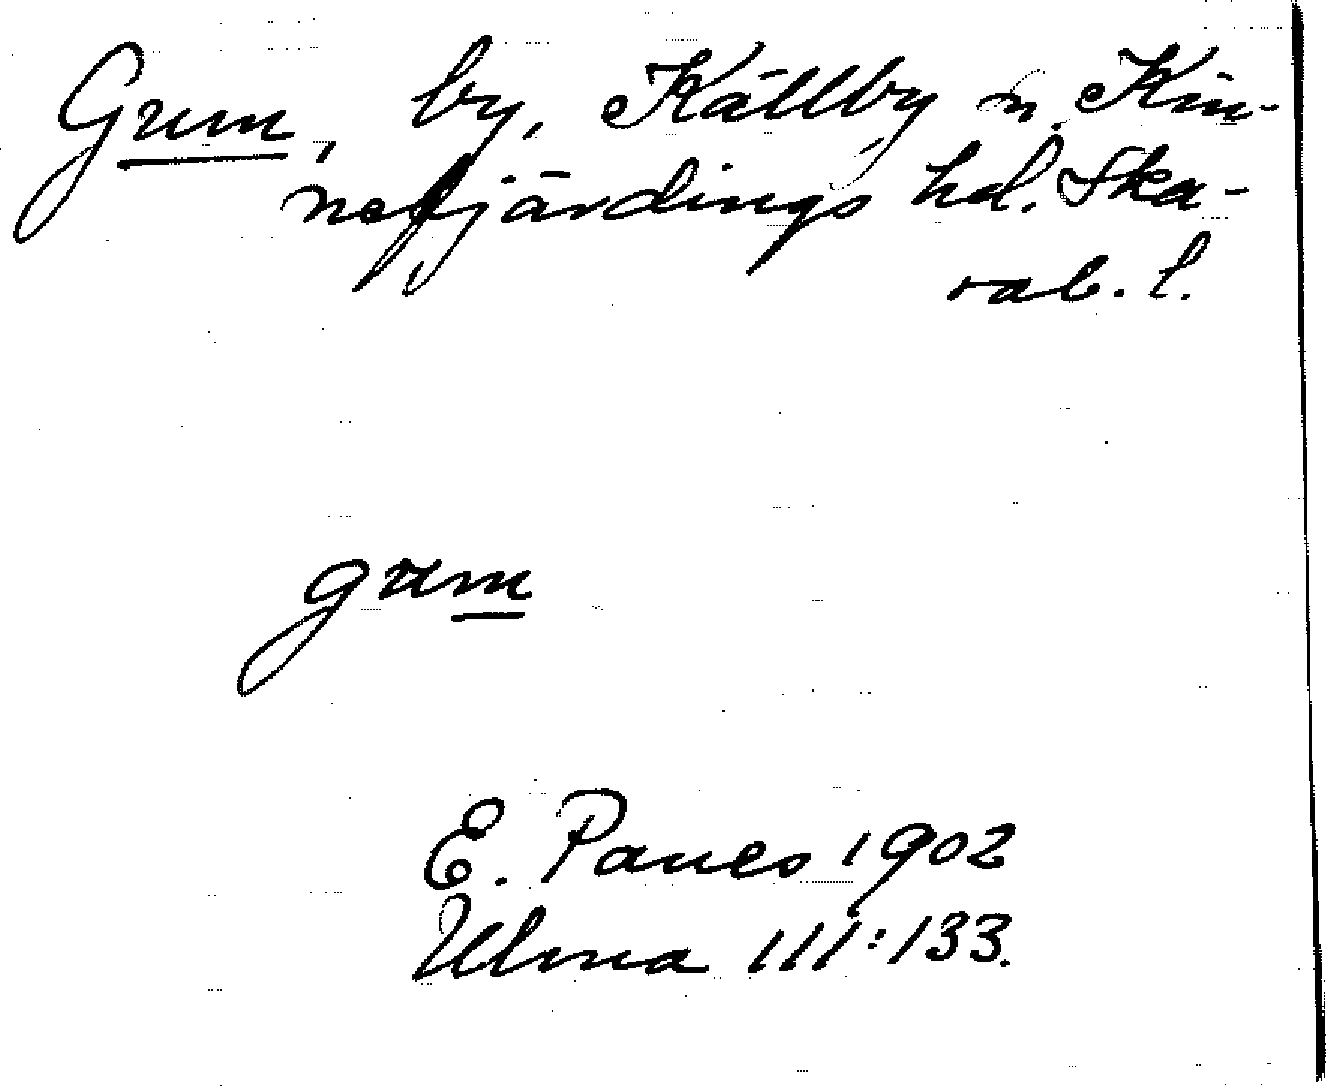 Grum, by, Källby sn. Kin-
nefjärdings hd. Ska-
rab. l.
grum
E. Paues 1902
Ulma 111:133.